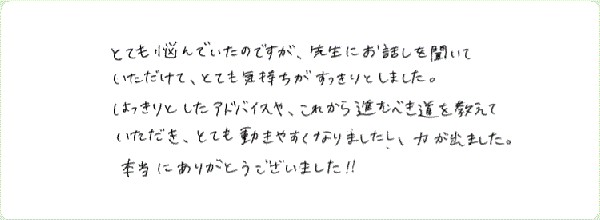 とても悩んでいたのですが、先生にお話しを聞いて
いただけて、とても気持ちがすっきりとしました。
はっきりとしたアドバイスや、これから進むべき道を教えて
いただき、とても動きやすくなりましたし、力が出ました。
本当にありがとうございました!!